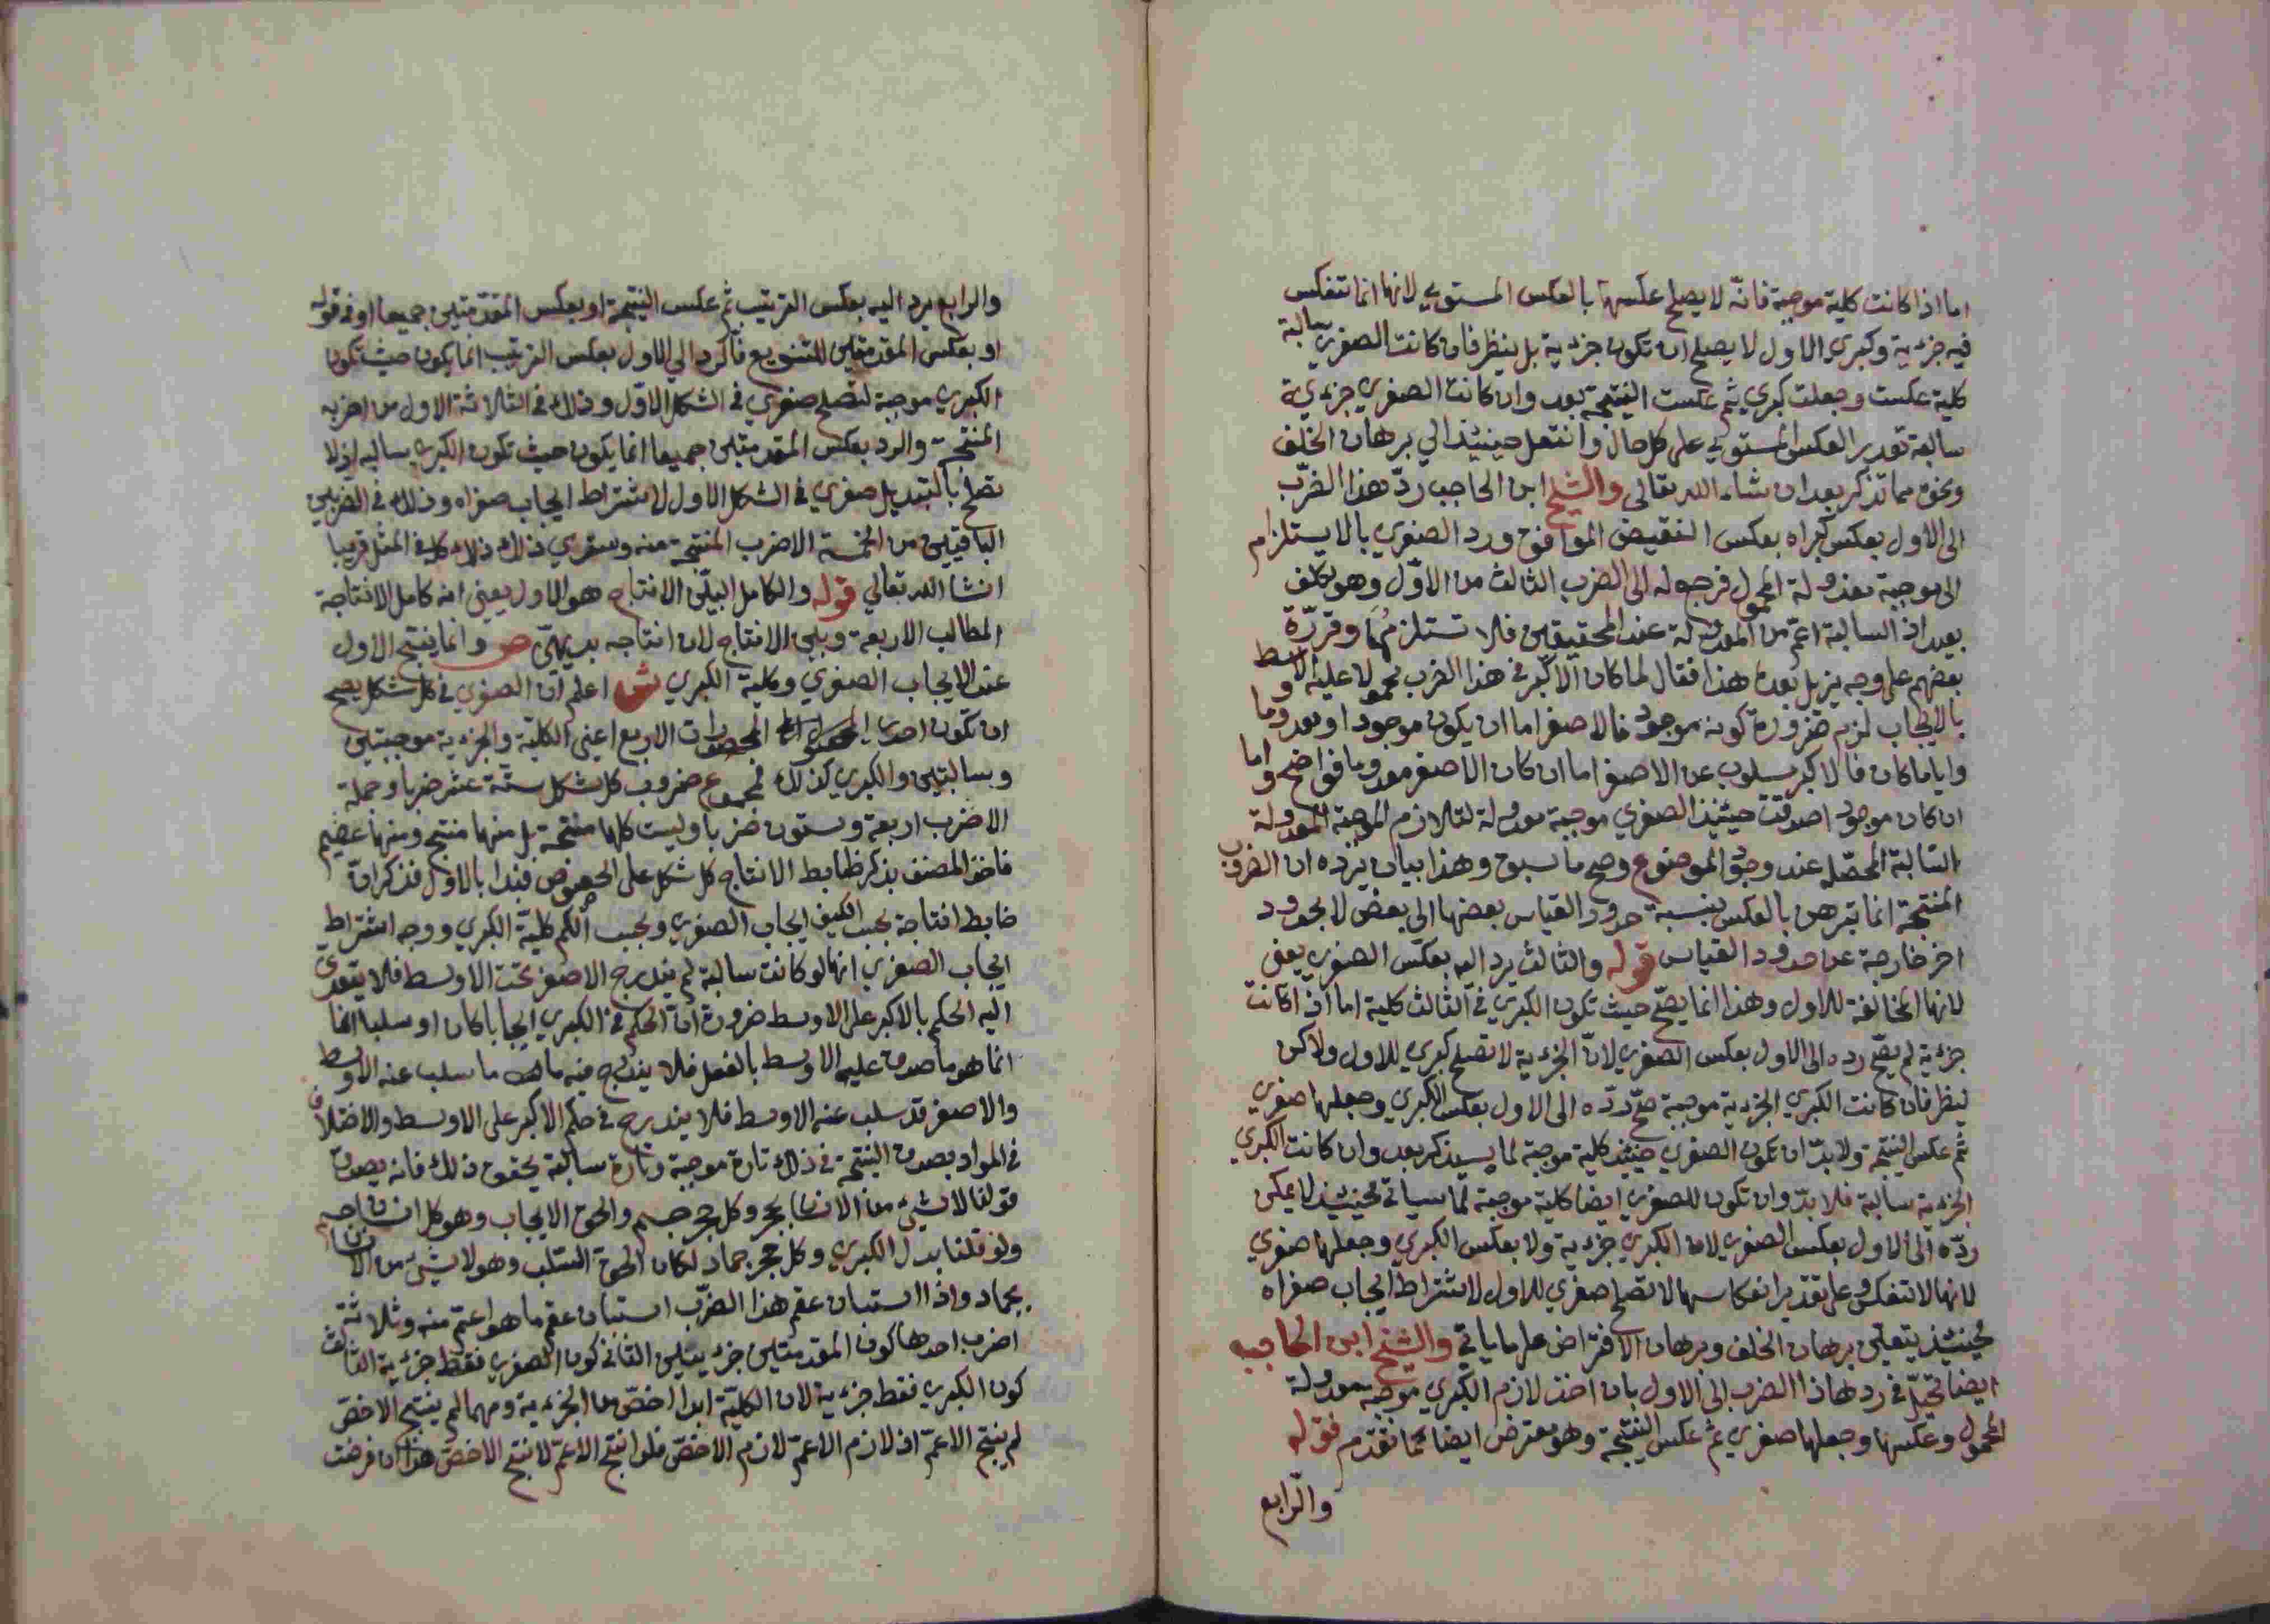 اما اذا كانت كلية موجبة فانّه لا يصلح عكسها بالعكس المستوي لانها انما تنعكس
فيه جزءية وكبرى الاول لا يصلح ان تكون جزءية بل ينظر فان كانت الصغرى سالبة
كلية عكست وجعلت كبرى ثم عكست النتيجة بعد وان كانت الصغرى جزءية
سالبة تعدر العكس المستوي على كل حال وانتقل حينئذ الي برهان الخلف
ونحوه مما تذكر بعد ان شاء الله تعالى والشيخ ابن الحاجب ردّ هذا الضرب
الى الاول بعكس كبراه بعكس النقيض الموافق ورد الصغرى بالاستلزام
الى موجبة معدولة المحمول فرجوله الى الضرب الثالث من الاوّل وهو تكلف
بعيد اذ السالبة اعمّ من المعدولة عند المحققين فلا تستلزمها وقررّه
بعضهم على وجه يزيل بعده هذا فقال لما كان الاكبر في هذا الضرب محمولا عليه الاوسط
بالايجاب لزم ضرورة كونه موجود فالاصغر اما ان يكون موجودا او معدوما
واياما كان فالاكبر مسلوب عن الاصغر اما ان كان الاصغر معدوما فواضح واما
ان كان موجود اصدقت حينئذ الصغرى موجبة معدولة لتلازم الموجبة المعدولة
السالبة المحصّله عند وجود الموضوع وصح ما سبق وهذا بيان يردّه ان الضرب
المنتجة انما تبرهن بالعكس بنسبة حدود القياس بعضها الى بعض لا بحدود
اخر خارجة عن حدود القياس قوله والثالث يرد اليه بعكس الصغرى يعني
لانها المخالفة للاول وهذا انما يصح حيث تكون الكبرى في الثالث كلية اما اذا كانت
جزءية لم يصح رده الى الاول بعكس الصغرى لانّ الجزءية لا تصلح كبرى للاول ولاكن
ينظر فان كانت الكبرى الجزءية موجبة صحّ ردّه الى الاول بعكس الكبرى وجعلها صغرى
ثم عكس النتيجة ولا بدّ ان تكون الصغرى حينئذ كلية موجبة لما سيذكر بعد وان كانت الكبرى
الجزءية سالبة فلا بدّ وان تكون للصغرى ايضا كلية موجبة لما سياتي فحينئذ لا يمكن
ردّه الى الاول بعكس الصغرى لان الكبرى جزءية ولا بعكس الكبرى وجعلها صغرى
لانها لا تنعكس وعلى تقدير انعكاسها لا تصلح صغرى للاول لاشتراط ايجاب صغراه
فحينئذ يتعين برهان الخلف وبرهان الافتراض على ما ياتي والشيخ ابن الحاجب
ايضا تحيّل في رد هاذا الضرب الى الاول بان اخذ لازم الكبرى موجبة معدولة
المحمول وعكسها وجعلها صغرى ثم عكس النتيجة وهو معترض ايضا بما تقدم قوله
والرابع
والرابع يرد اليه بعكس الترتيب ثم عكس النتيجة او بعكس المقدمتين جميعا او في قوله
او بعكس المقدمتين للتنويع فالرد الي الاول بعكس الترتيب انما يكون حيث تكون
الكبرى موجبة لتصلح صغرى في الشكل الاوّل وذلك في الثلاثة الاول من اضربه
المنتجة والرد بعكس المقدمتين جميعا انما يكون حيث تكون الكبرى سالبه اذ لا
تصلح بالتبديل صغرى في الشكل الاول لاشتراط ايجاب صغراه وذلك في الضربين
الباقيين من الخمسة الاضرب المنتجة منه وسترى ذلك كله في المثل قريبا
ان شا الله تعالي قوله والكامل البيّن الانتاج هو الاول يعني انه كامل لانتاجه
المطالب الاربعة وبين الانتاج لان انتاجه بديهيّ ص وانما ينتج الاول
عند الايجاب الصغرى وكلية الكبرى ش اعلم ان الصغرى في كل شكل يصح
ان تكون احدى المحصورات الاربع اعني الكليّة والجزءية موجبتين
وسالبتين والكبرى كذلك فمجموع ضروب كل شكل ستّة عشر ضربا وجملة
الاضرب اربعة وستون ضربا وليست كلها منتجة بل منها منتج ومنها عقيم
فاخذ المصنف بذكر ظابط الانتاج كل شكل على الخصوص فبدا بالاول فذكر انّ
ضابط انتاجه بحسب الكيف ايجاب الصغرى وبحسب الكم كليّة الكبرى ووجه اشتراط
ايجاب الصغرى انها لو كانت سالبة لم يندرج الاصغر تحت الاوسط فلا يتعدى
اليه الحكم بالاكبر على الاوسط ضرورة انّ الحكم في الكبرى ايجابا كان او سلبا انما
انما هو ما صدق عليه الاوسط بالفعل فلا يندرج فيه ما سلب عنه الاوسط
والاصغر قد سلب عنه الاوسط فلا يندرج في حكم الاكبر على الاوسط والاختلاف
في المواد بصدق النتيجة في ذلك تارة موجبة وتارة سالبة يحقق ذلك فانه يصدق
قولنا لا شيء من الانسان بحجر وكل حجر جسم والحق الايجاب وهو كل انسان جسم
ولو قلنا بدل الكبرى وكل حجر جماد لكان الحق السّلب وهو لا شيء من الانسان
بجماد واذا استبان عقم هذا الضرب استبان عقم ما هو اعمّ منه وثلاثة
اضرب احدها كون المقدمتين جزءيتين الثاني كون الصغرى فقط جزءية الثالث
كون الكبرى فقط جزءية لان الكليّة ابدا اخصّ من الجزءية ومهما لم ينتج الاخصّ
لم ينتج الاعمّ اذ لازم الاعمّ لازم الاخصّ فلو انتج الاعمّ لانتج الاخصّ هذا ان فرضت